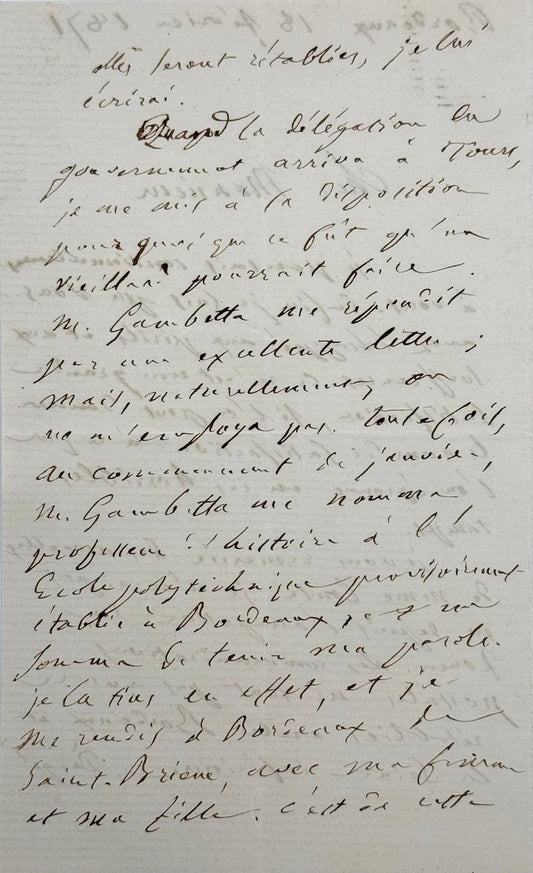 elles seront rétablies, je lui
écrirai.
Quand la délégation du
gouvernement arriva à Tours,
je me mis à la disposition
pour quoi que ce fût qu'un
vieillard pourrait faire.
M. Gambetta me répondit
par une excellente lettre ;
mais, naturellement, on
ne m'employa pas. toutefois,
au commencement de janvier,
M. Gambetta me nomma
professeur d'histoire à l'
Ecole polytechnique provisoirement
établie à Bordeaux, et me
somma de tenir ma parole.
je la tins en effet, et je
me rendis à Bordeaux de
Saint-Brieuc, avec ma femme
et ma fille. c'est de cette